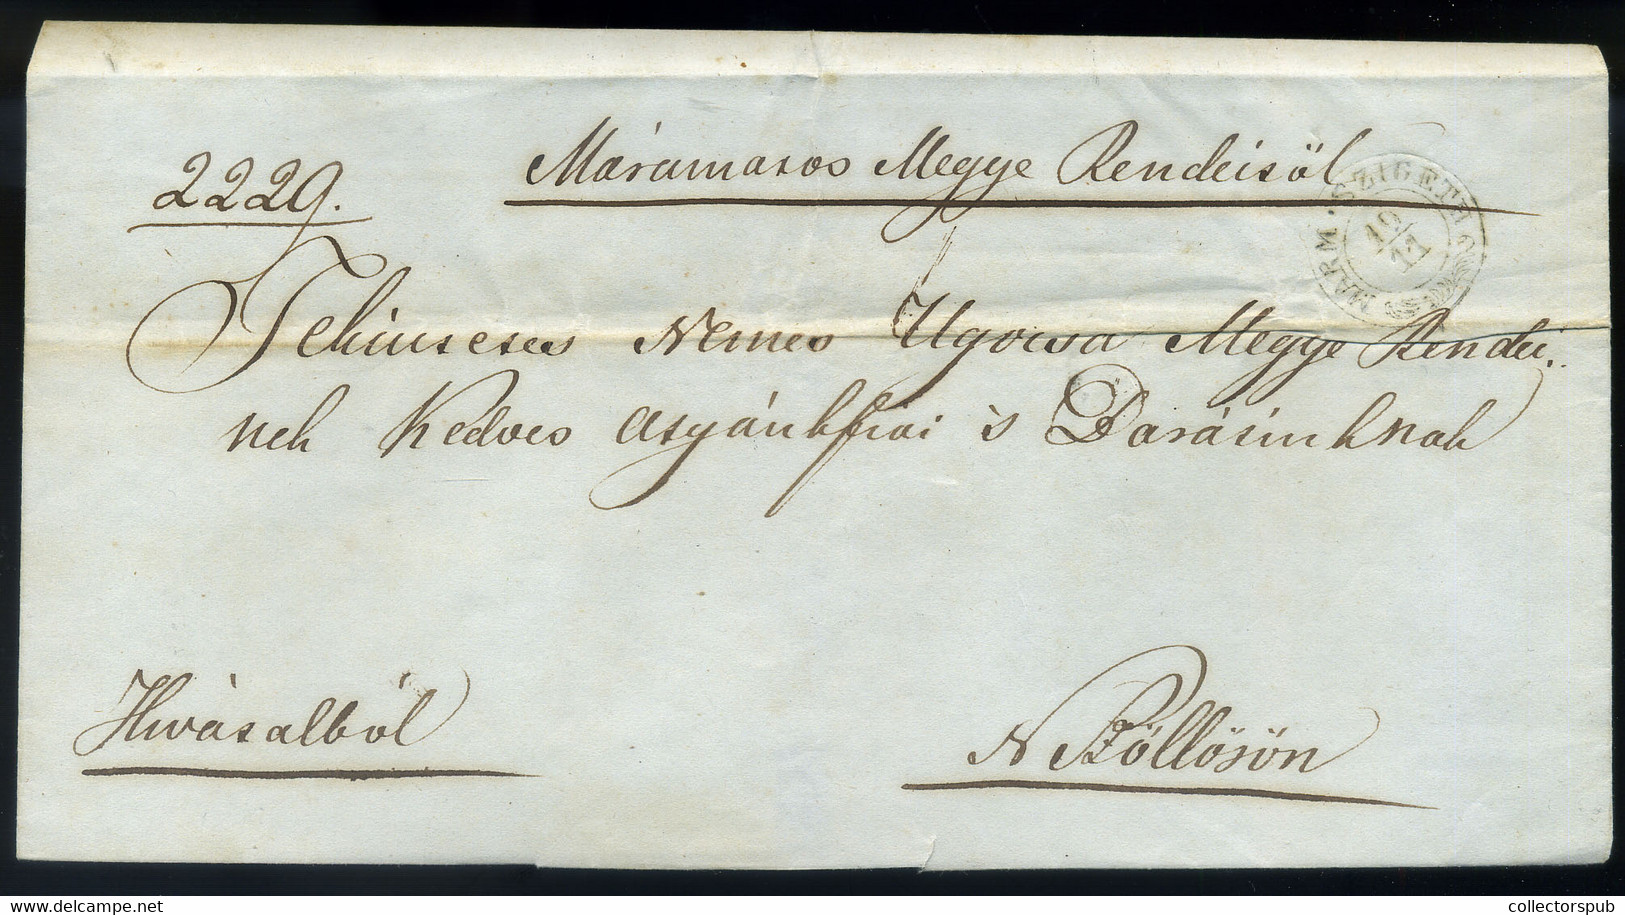 2229.
Máramaros Megye Rendeitöl
MARM. SZIGETH
19/11
Tekintetes Nemes Ugocsa Megye Rendei-
nek Kedves Atyánkfiai 's Barátinknak
Hivatalból
N Szőllősön
collectorspub